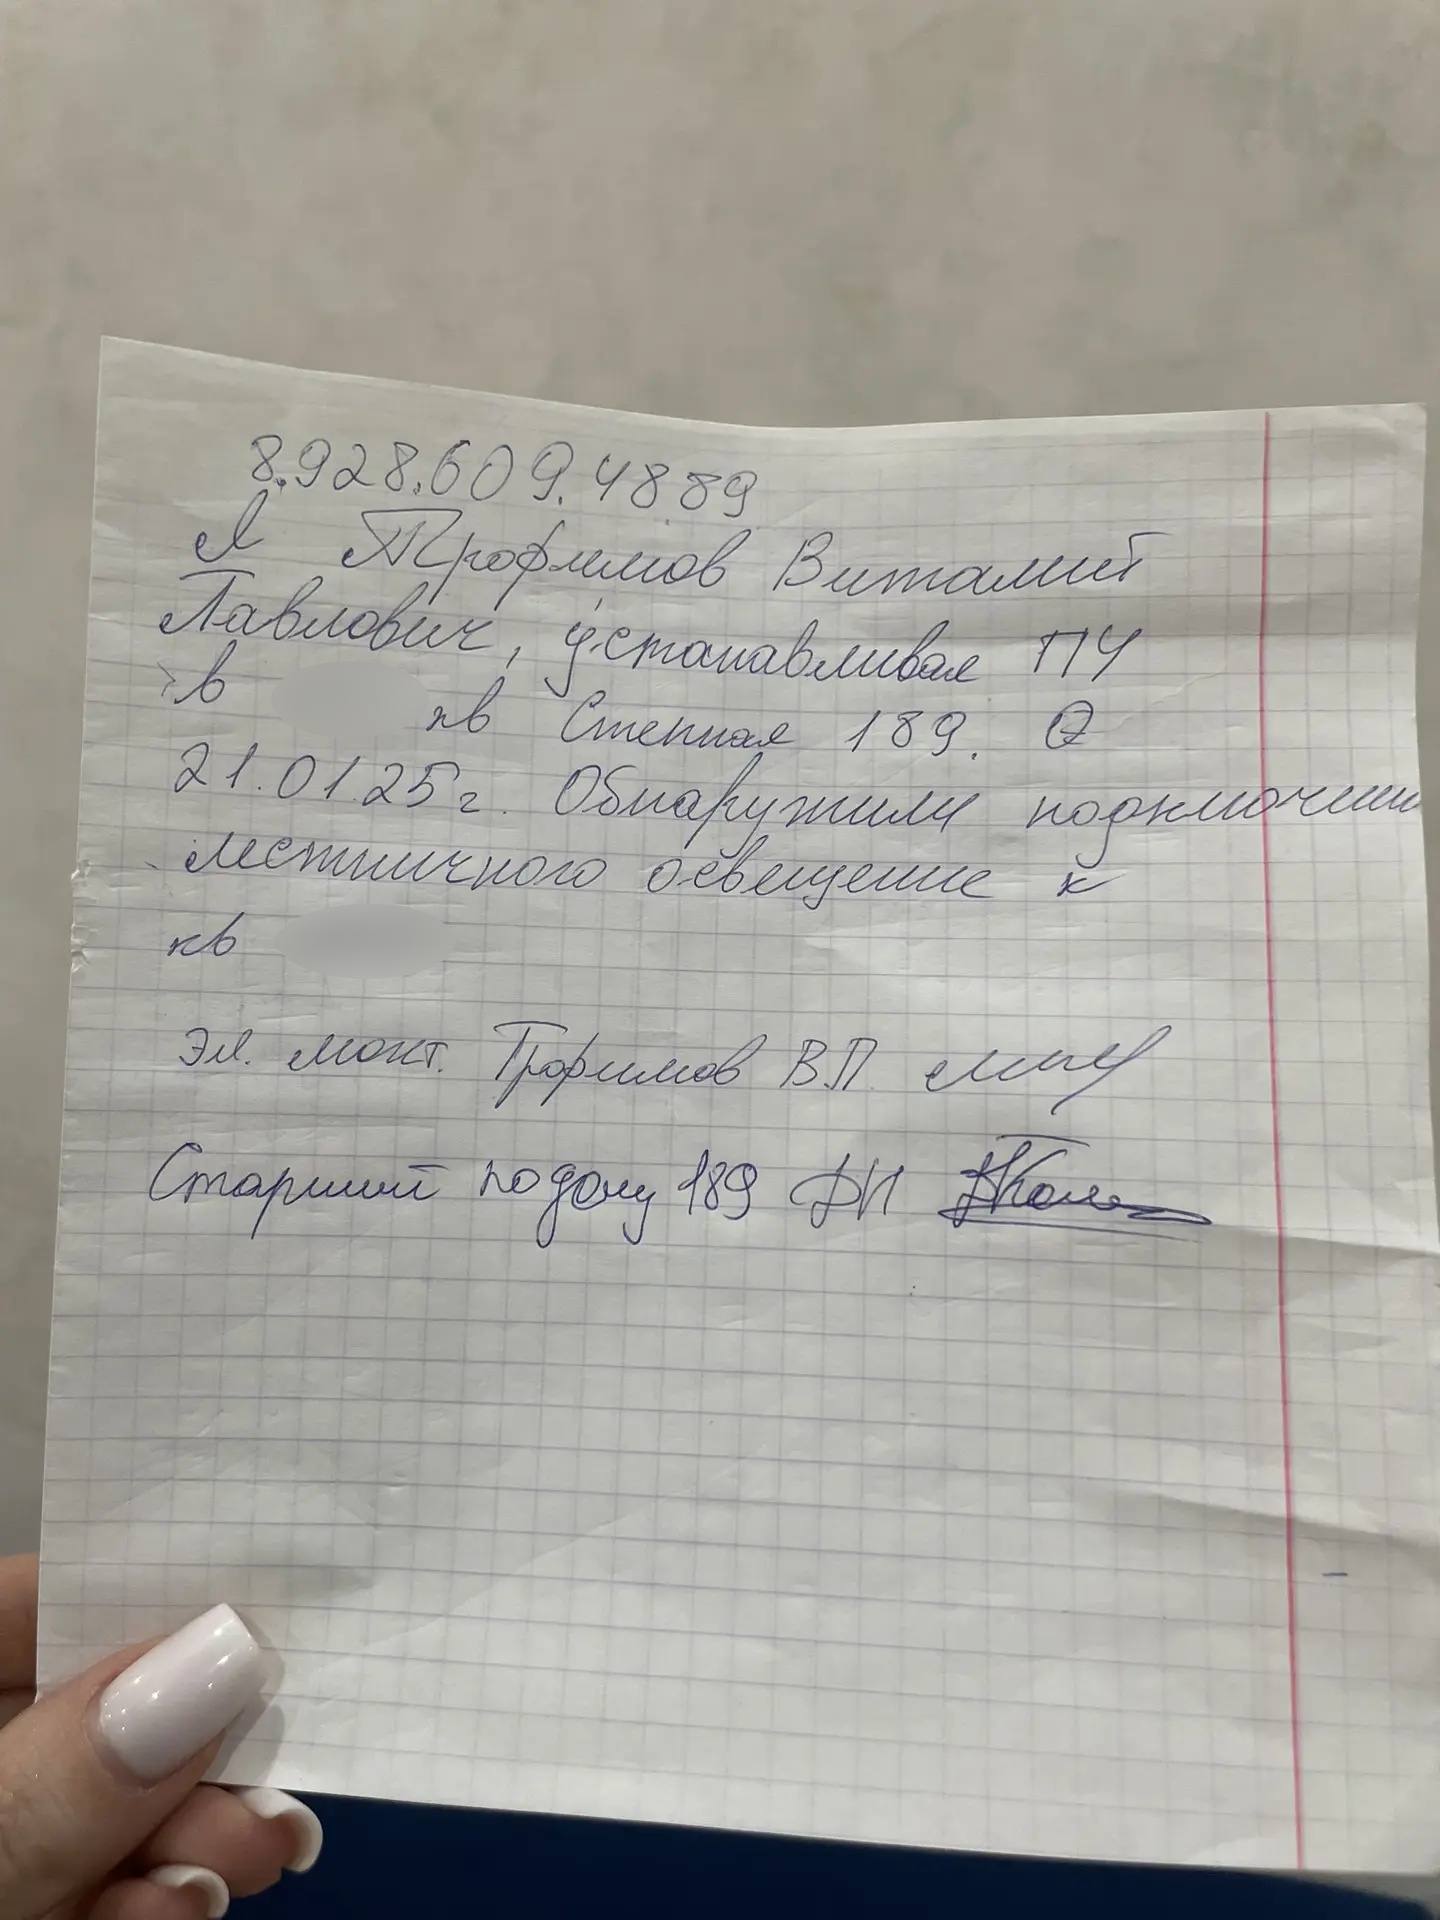 8.928.609.4889
Я Трофимов Виталий
Павлович, устанавливая ПУ
в кв Степная 189.
21.01.25г. Обнаружили подключени
лестничного освещение к
кв
Эл. монт. Трофимов В.П.
Старший по дому 189